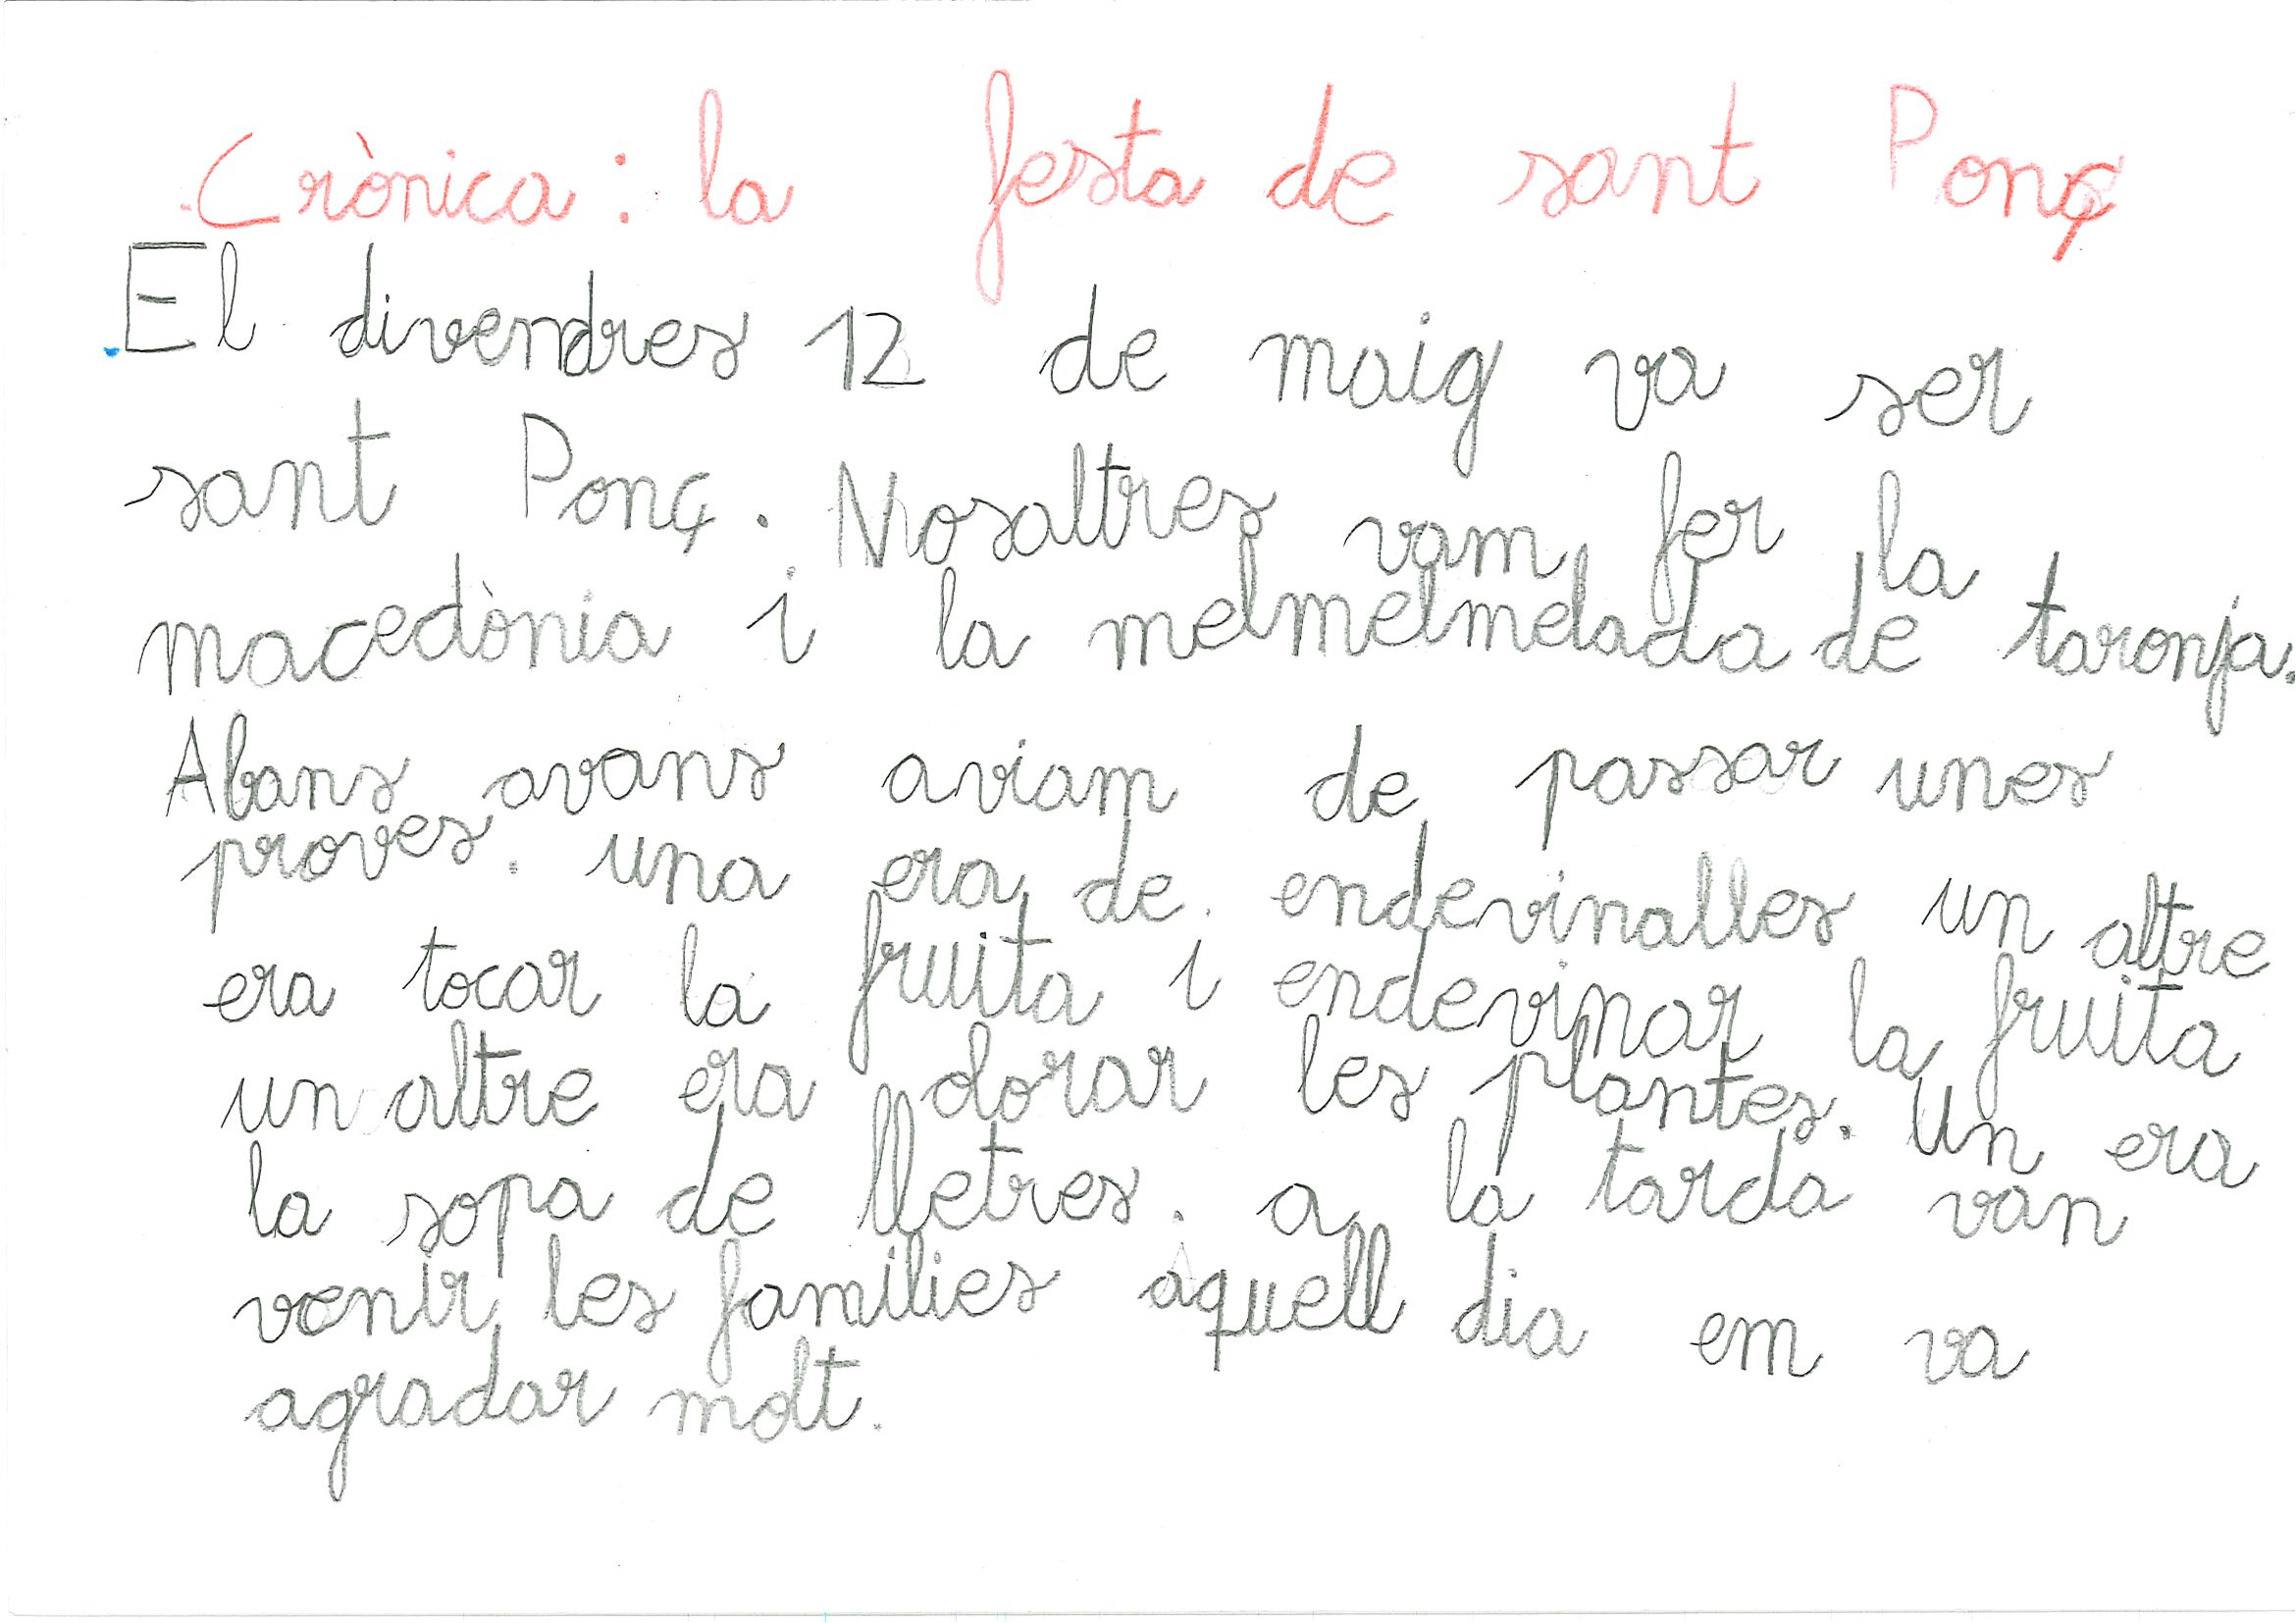 Crònica: la festa de sant Ponç
El divendres 12 de maig va ser
sant Ponç. Nosaltres vam fer la
macedònia i la melmelmelada de taronja.
Abans avans aviam de passar unes
proves. una era de endevinalles un altre
era tocar la fruita i endevinar la fruita
un altre era olorar les plantes. Un era
la sopa de lletres. a la tarda van
venir les families aquell dia em va
agradar molt.